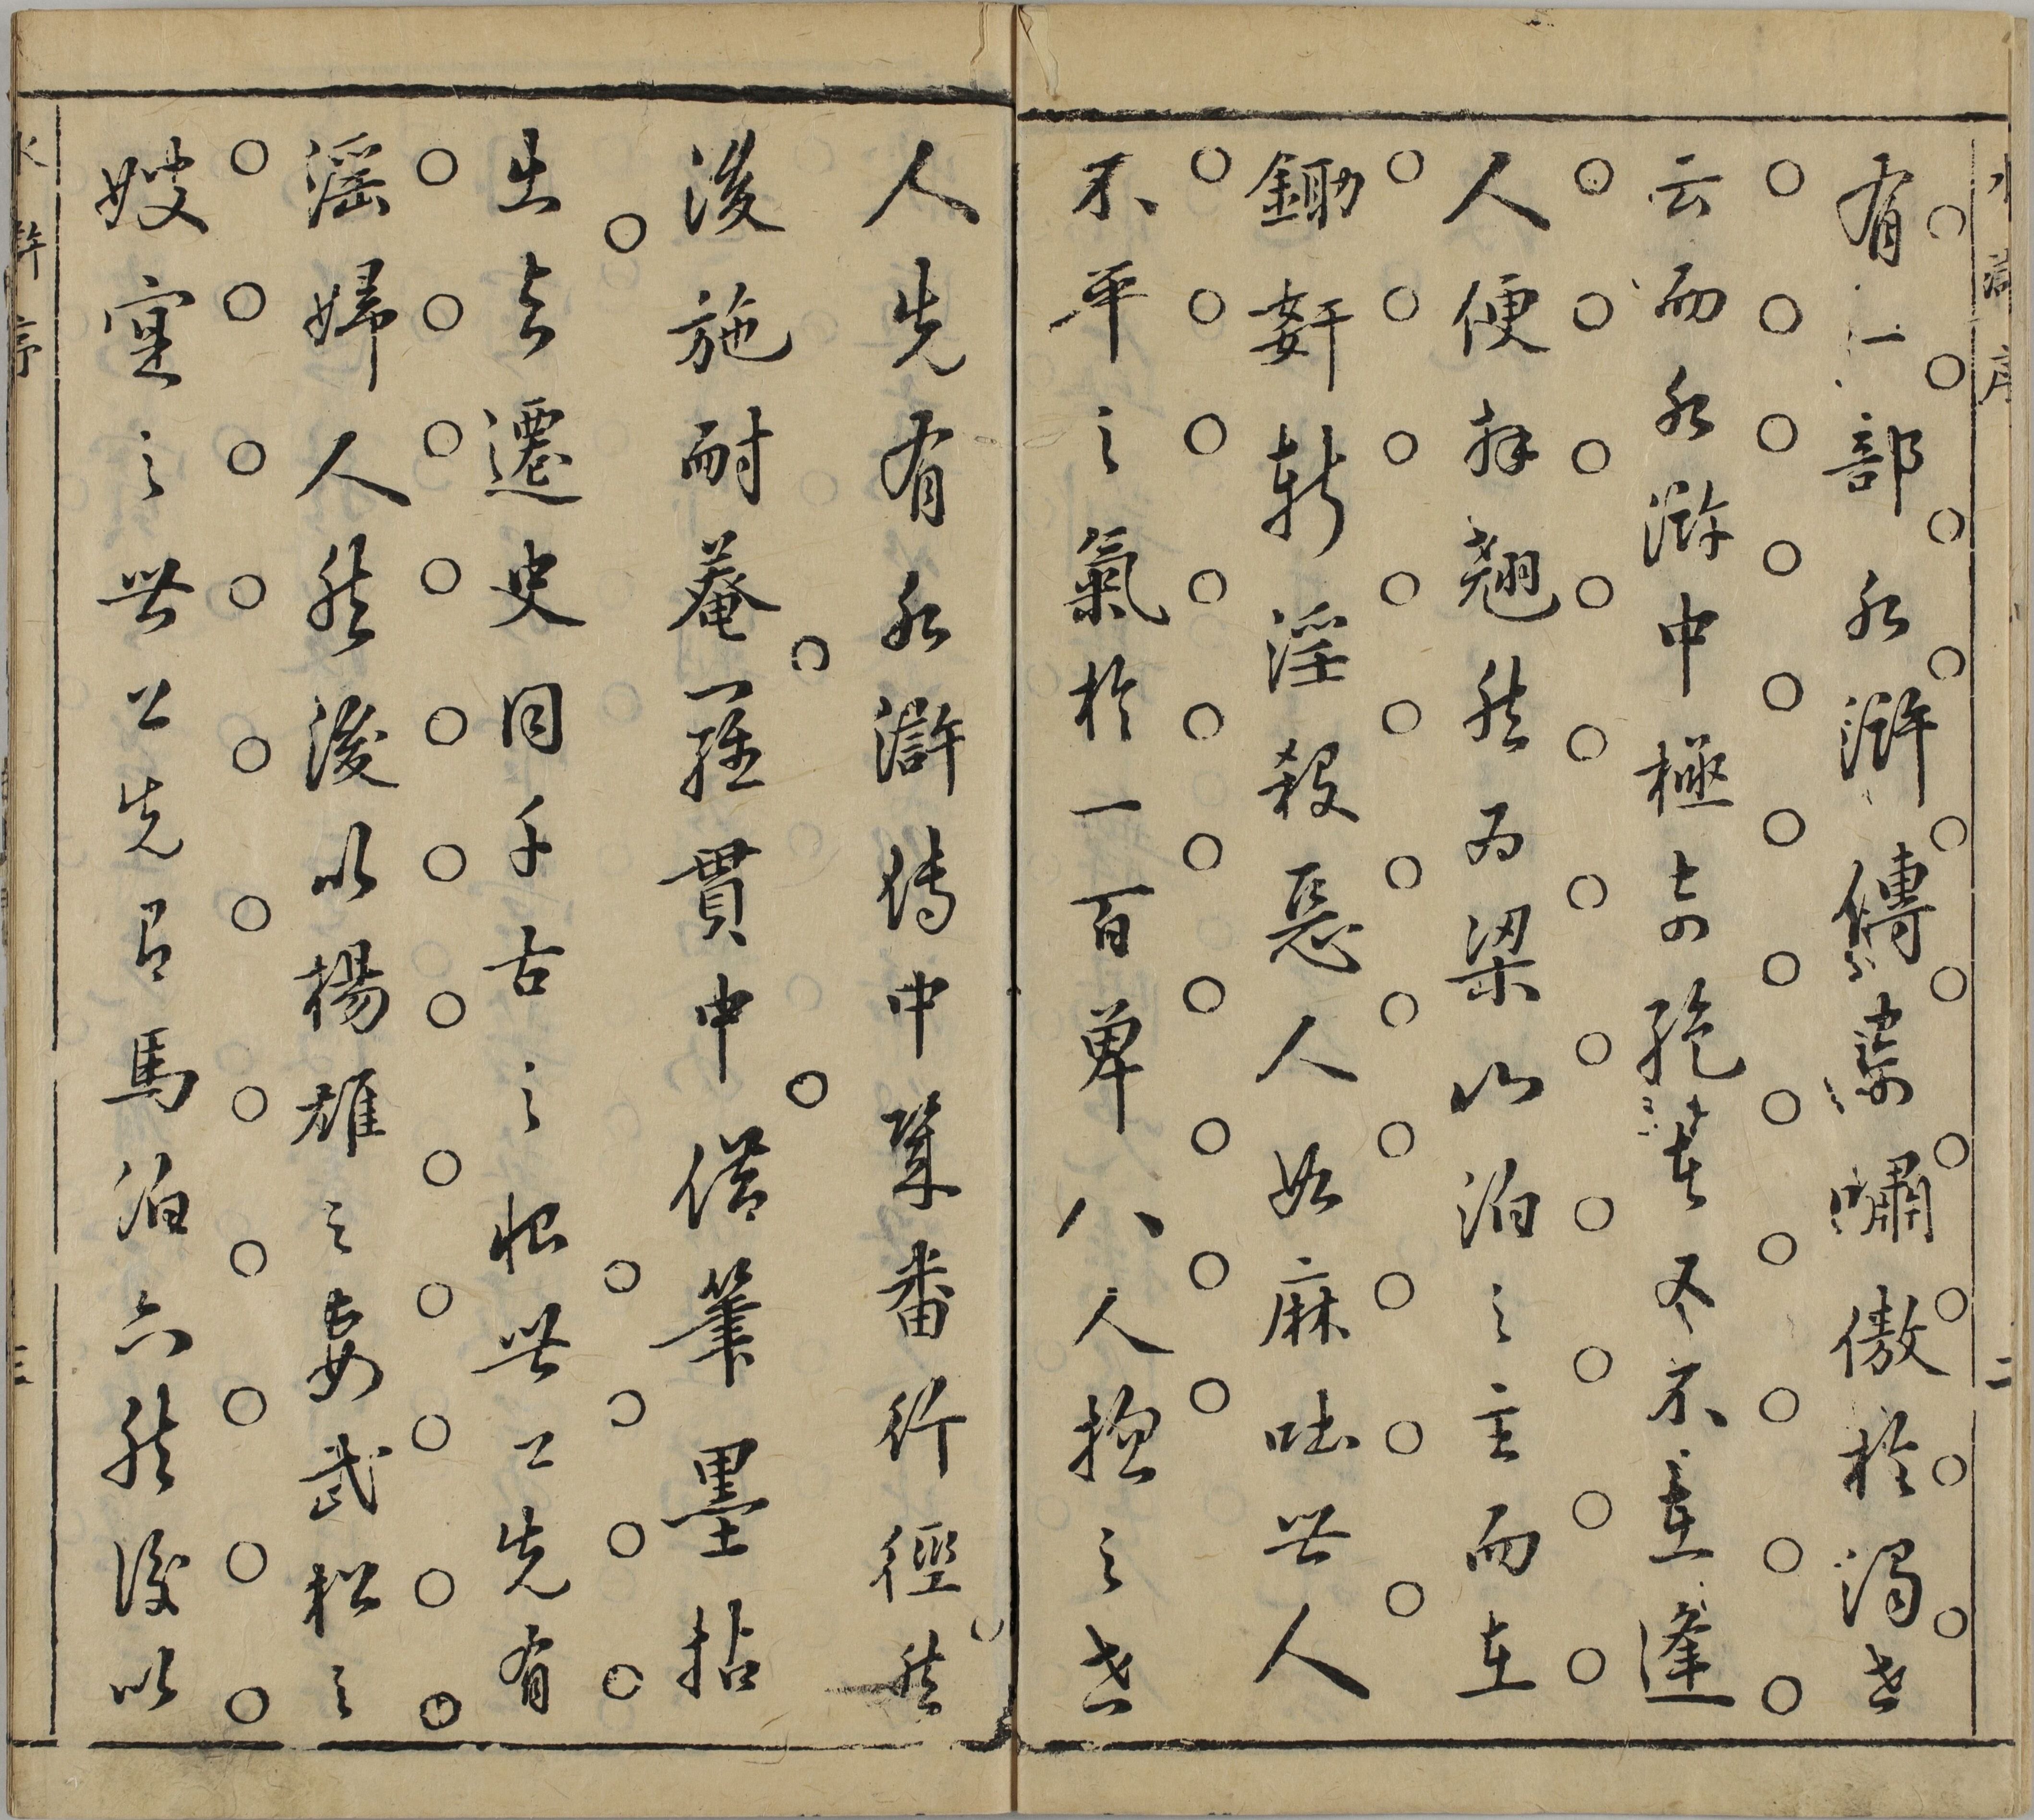 水滸序 二
有一部水滸傳嘯傲於濁世
云而水滸中極奇絕者又不在逢
人便拜翹然為梁山泊之主而在
鋤奸斬淫殺惡人如麻咄世人
不平之氣於一百單八人摠之世
人先有水滸傳中幾番行徑然
後施耐菴羅貫中借筆墨拈
出與遷史同千古之恨世上先有
淫婦人然後以楊雄之妻武松之
嫂寔之世上先有馬泊六然後以
水滸序 三